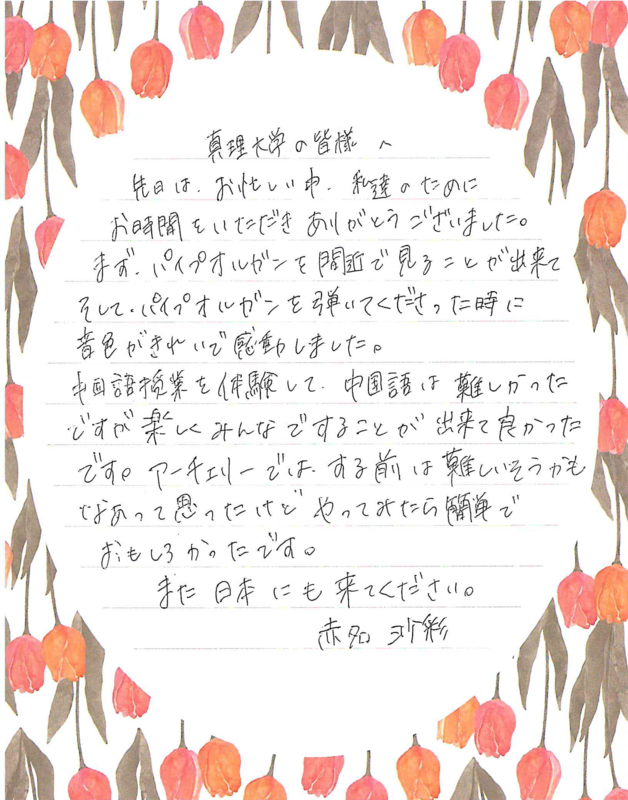 真理大学の皆様へ
先日は、お忙しい中、私達のために
お時間をいただきありがとうございました。
まず、パイプオルガンを間近で見ることが出来て
そして、パイプオルガンを弾いてくださった時に
音色がきれいで感動しました。
中国語授業を体験して、中国語は難しかった
ですが楽しくみんなですることが出来て良かった
です。アーチェリーでは、する前は難しいそうかも
なあって思ったけど やってみたら簡単で
おもしろかったです。
また日本にも来てください。
赤知 沙彩